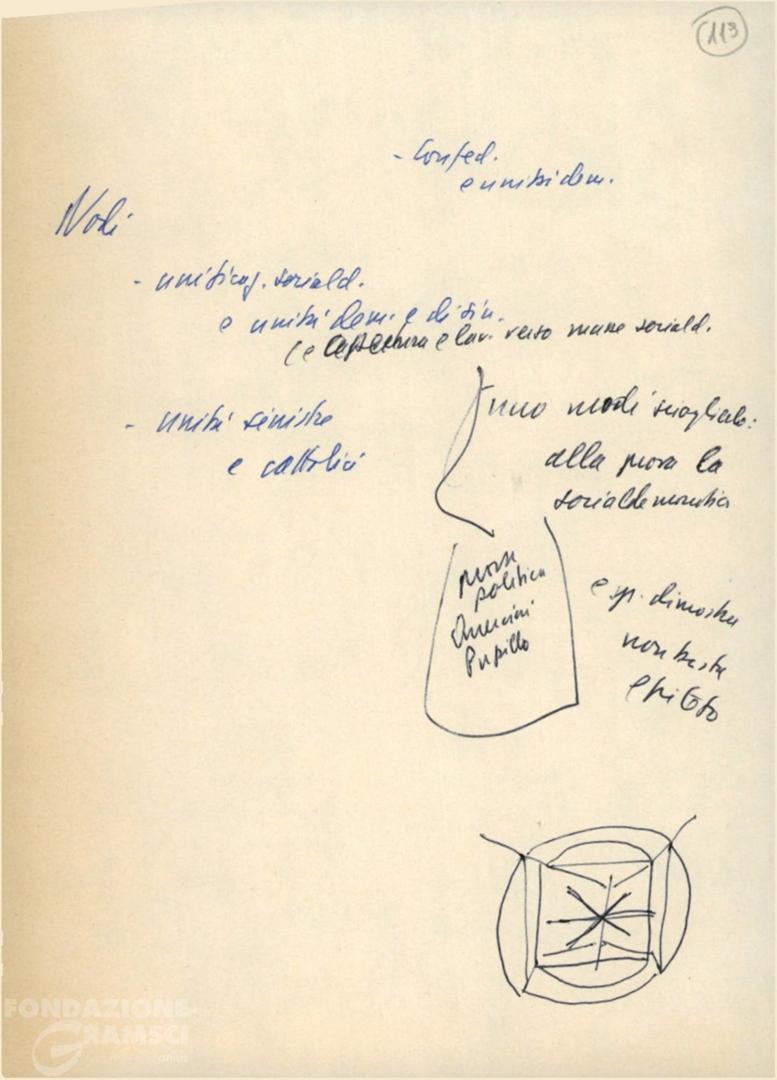 113
- Confed.
e unità dem.
Nodi
- unificaz. sociald.
e unità dem. e di sin.
(e e lav. verso masse sociald.
- unità sinistre
e cattolici
uno modi scioglierlo:
alla prova la
socialdemocrazia
prova
politica
Pupillo
e sp. dimostra
non basta
FONDAZIONE
GRAMSCI
onlus